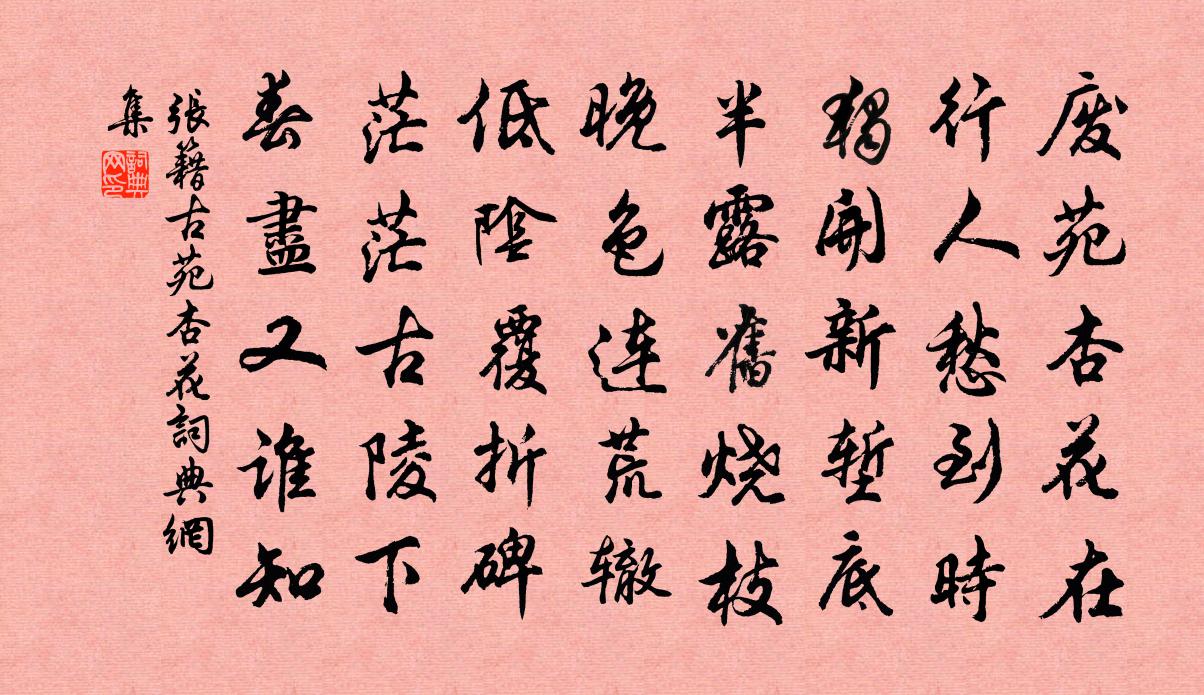 廢苑杏花在
行人愁到時
獨開新塹底
半露舊燒枝
晚色連荒轍
低陰覆折碑
茫茫古陵下
春盡又誰知
張籍古苑杏花詞典網
集
詞典
网印